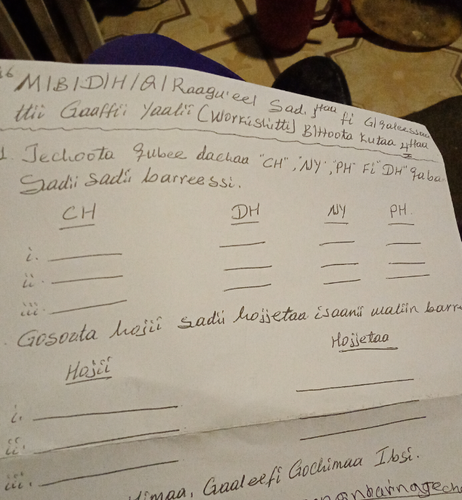 M/B/D/H/Q/ Raagu'eel Sad. ffaa fi G/galeessaa
ttii Gaaffii Yaalii (Workishitti) B/Hoota kutaa 4ffaa
1. Jechoota Qubee dachaa "CH", "NY", "PH" Fi "DH" qaba
Sadii sadii barreessi.
CH DH NY PH
i.
ii.
iii.
Gosoota hojii sadii hojjetaa isaanii waliin barr
Hojii Hojjetaa
i.
ii.
iii.
imaa, Gaaleefi Gochimaa Ibsi.